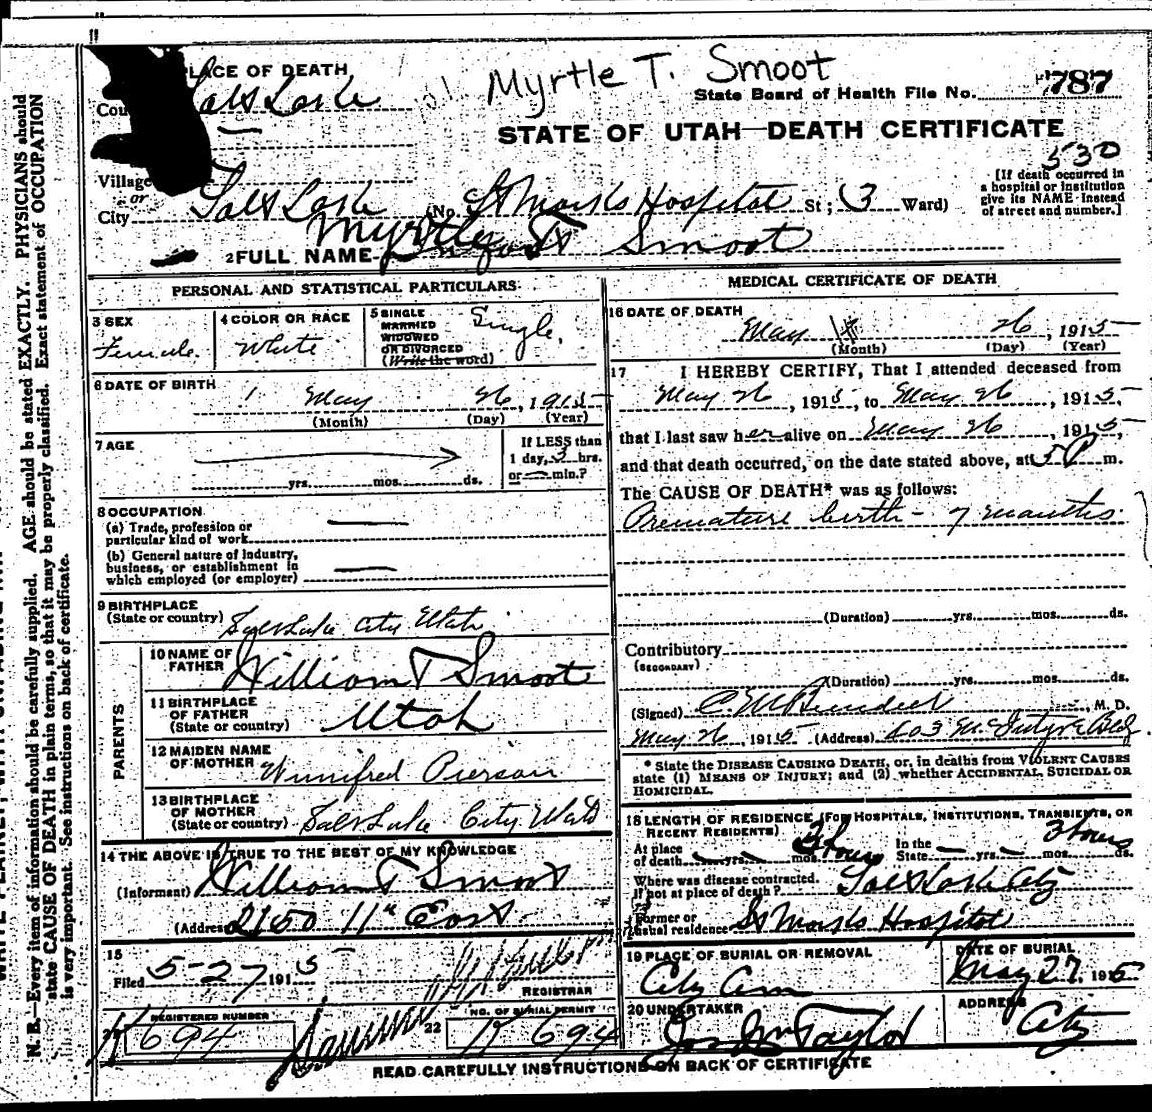 Myrtle T. Smoot
PLACE OF DEATH
State Board of Health File No. 787
Salt Lake
STATE OF UTAH—DEATH CERTIFICATE
530
Village
or
City Salt Lake (No. St Marks Hospital St; 3 Ward)
[If death occurred in
a hospital or institution
give its NAME instead
of street and number.]
2 FULL NAME Myrtle T Smoot
PERSONAL AND STATISTICAL PARTICULARS
3 SEX
Female
4 COLOR OR RACE
White
5 SINGLE
MARRIED
WIDOWED
OR DIVORCED
(Write the word)
Single
6 DATE OF BIRTH
May 26, 1915
(Month) (Day) (Year)
7 AGE
yrs. mos. ds.
If LESS than
1 day, 3 hrs.
or min.?
8 OCCUPATION
(a) Trade, profession or
particular kind of work
(b) General nature of industry,
business, or establishment in
which employed (or employer)
9 BIRTHPLACE
(State or country) Salt Lake City Utah
PARENTS
10 NAME OF
FATHER William T Smoot
11 BIRTHPLACE
OF FATHER
(State or country) Utah
12 MAIDEN NAME
OF MOTHER Winnifred Pierson
13 BIRTHPLACE
OF MOTHER
(State or country) Salt Lake City Utah
14 THE ABOVE IS TRUE TO THE BEST OF MY KNOWLEDGE
(Informant) William T Smoot
(Address 2150 11" East
15
Filed 5-27 1915
REGISTRAR
REGISTERED NUMBER
21 K 694
22 NO. OF BURIAL PERMIT
K 694
MEDICAL CERTIFICATE OF DEATH
16 DATE OF DEATH
May 26, 1915
(Month) (Day) (Year)
17 I HEREBY CERTIFY, That I attended deceased from
May 26, 1915, to May 26, 1915,
that I last saw her alive on May 26, 1915,
and that death occurred, on the date stated above, at 5 P m.
The CAUSE OF DEATH* was as follows:
Premature birth - 7 months
(Duration) yrs. mos. ds.
Contributory
(SECONDARY)
(Duration) yrs. mos. ds.
(Signed) M. D.
May 26, 1915 (Address) 403 McIntyre Bldg
* State the DISEASE CAUSING DEATH, or, in deaths from VIOLENT CAUSES
state (1) MEANS OF INJURY; and (2) whether ACCIDENTAL, SUICIDAL OR
HOMICIDAL.
18 LENGTH OF RESIDENCE (FOR HOSPITALS, INSTITUTIONS, TRANSIENTS, OR
RECENT RESIDENTS)
At place
of death yrs. mos. 3 hours
In the
State yrs. mos. 3 hours ds.
Where was disease contracted,
if not at place of death? Salt Lake City
Former or
usual residence St Marks Hospital
19 PLACE OF BURIAL OR REMOVAL
City Cem
DATE OF BURIAL
May 27, 1915
20 UNDERTAKER
Jos Wm Taylor
ADDRESS
City
READ CAREFULLY INSTRUCTIONS ON BACK OF CERTIFICATE
N. B.—Every item of information should be carefully supplied. AGE should be stated EXACTLY. PHYSICIANS should
state CAUSE OF DEATH in plain terms, so that it may be properly classified. Exact statement of OCCUPATION
is very important. See instructions on back of certificate.